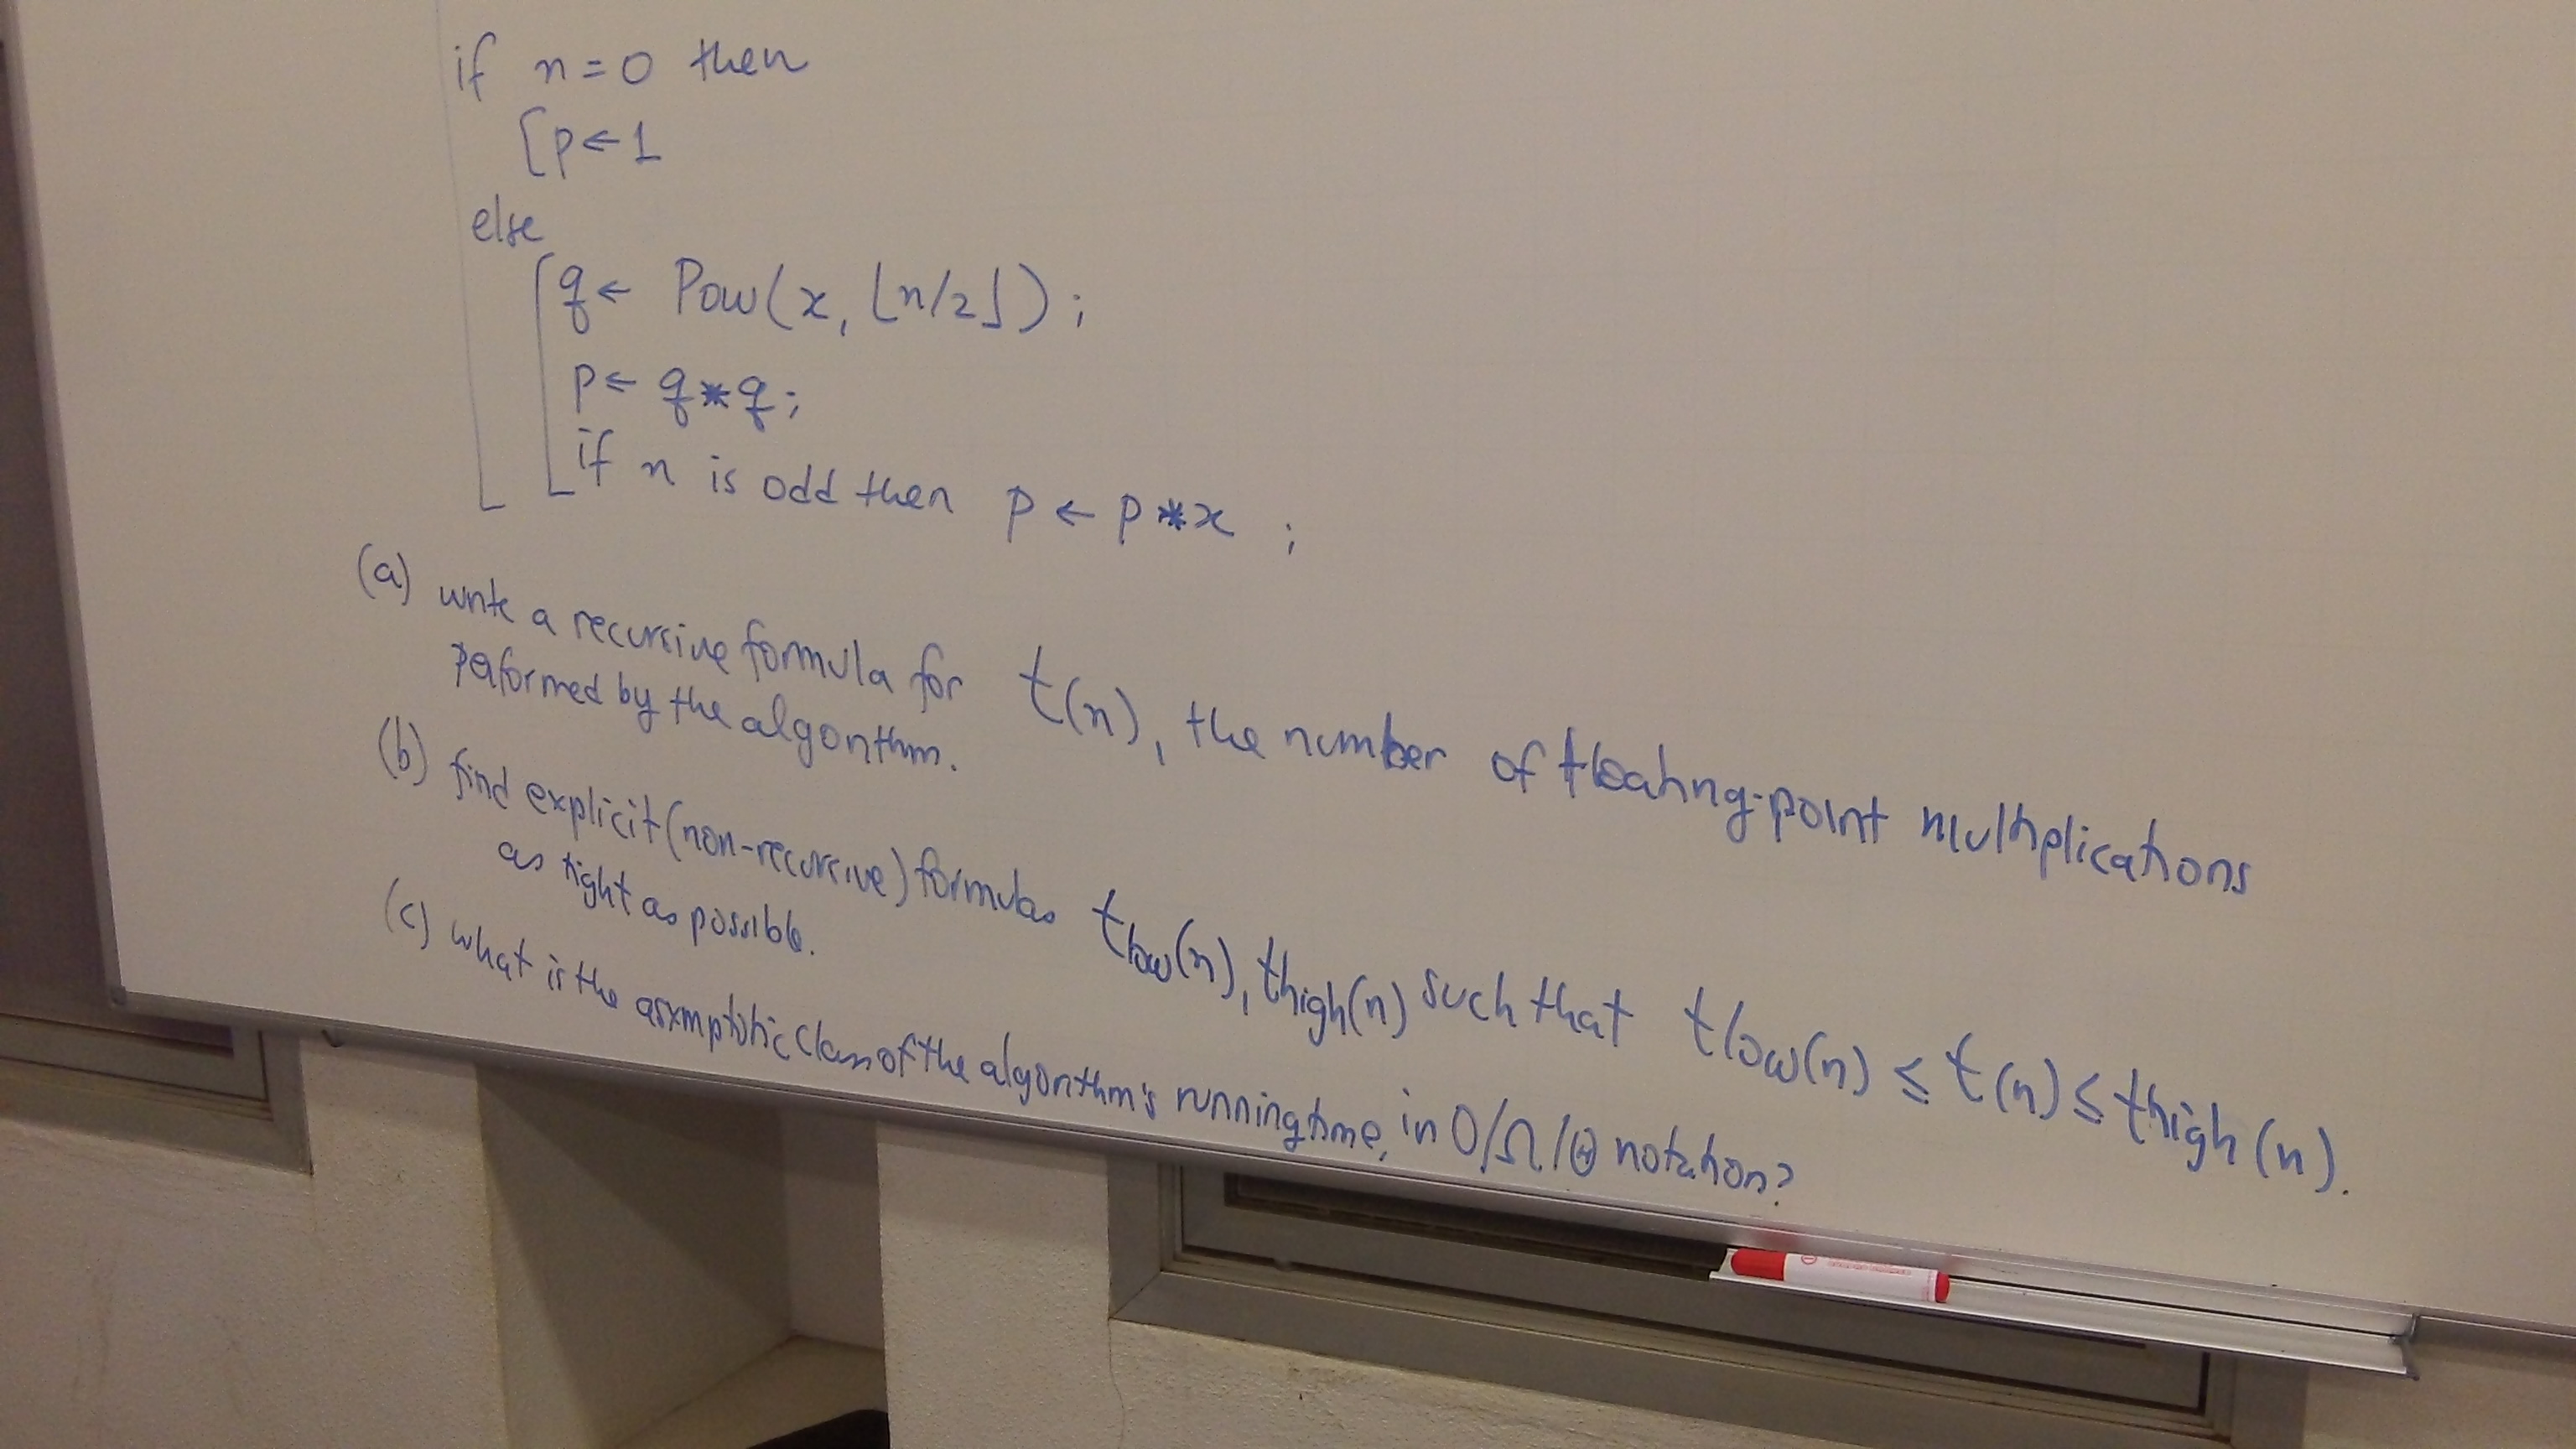 if n=0 then
[p←1
else
q← Pow(x, ⌊n/2⌋);
p← q*q;
if n is odd then p ← p*x ;
(a) write a recursive formula for t(n), the number of floating-point multiplications
performed by the algorithm.
(b) find explicit (non-recursive) formulas tlow(n), thigh(n) such that tlow(n) ≤ t(n) ≤ thigh(n).
as tight as possible.
(c) what is the asymptotic class of the algorithm's running time, in O/Ω/Θ notation?